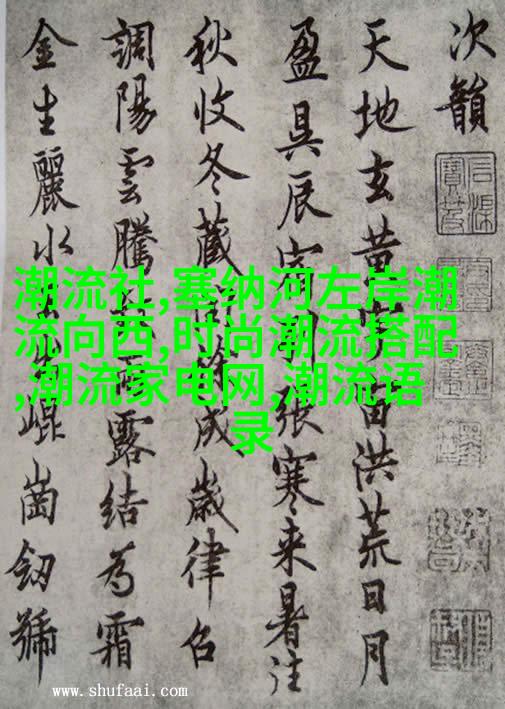 次韻
天地玄黄宙洪荒日月
盈昃辰宿列張寒来暑往
秋收冬藏餘成歳律召
調陽雲騰雨露結為霜
金生麗水崐崗劒號
潮流社,塞纳河左岸潮
流向西,时尚潮流搭配
,潮流家电网,潮流语
录
www.shufaai.com